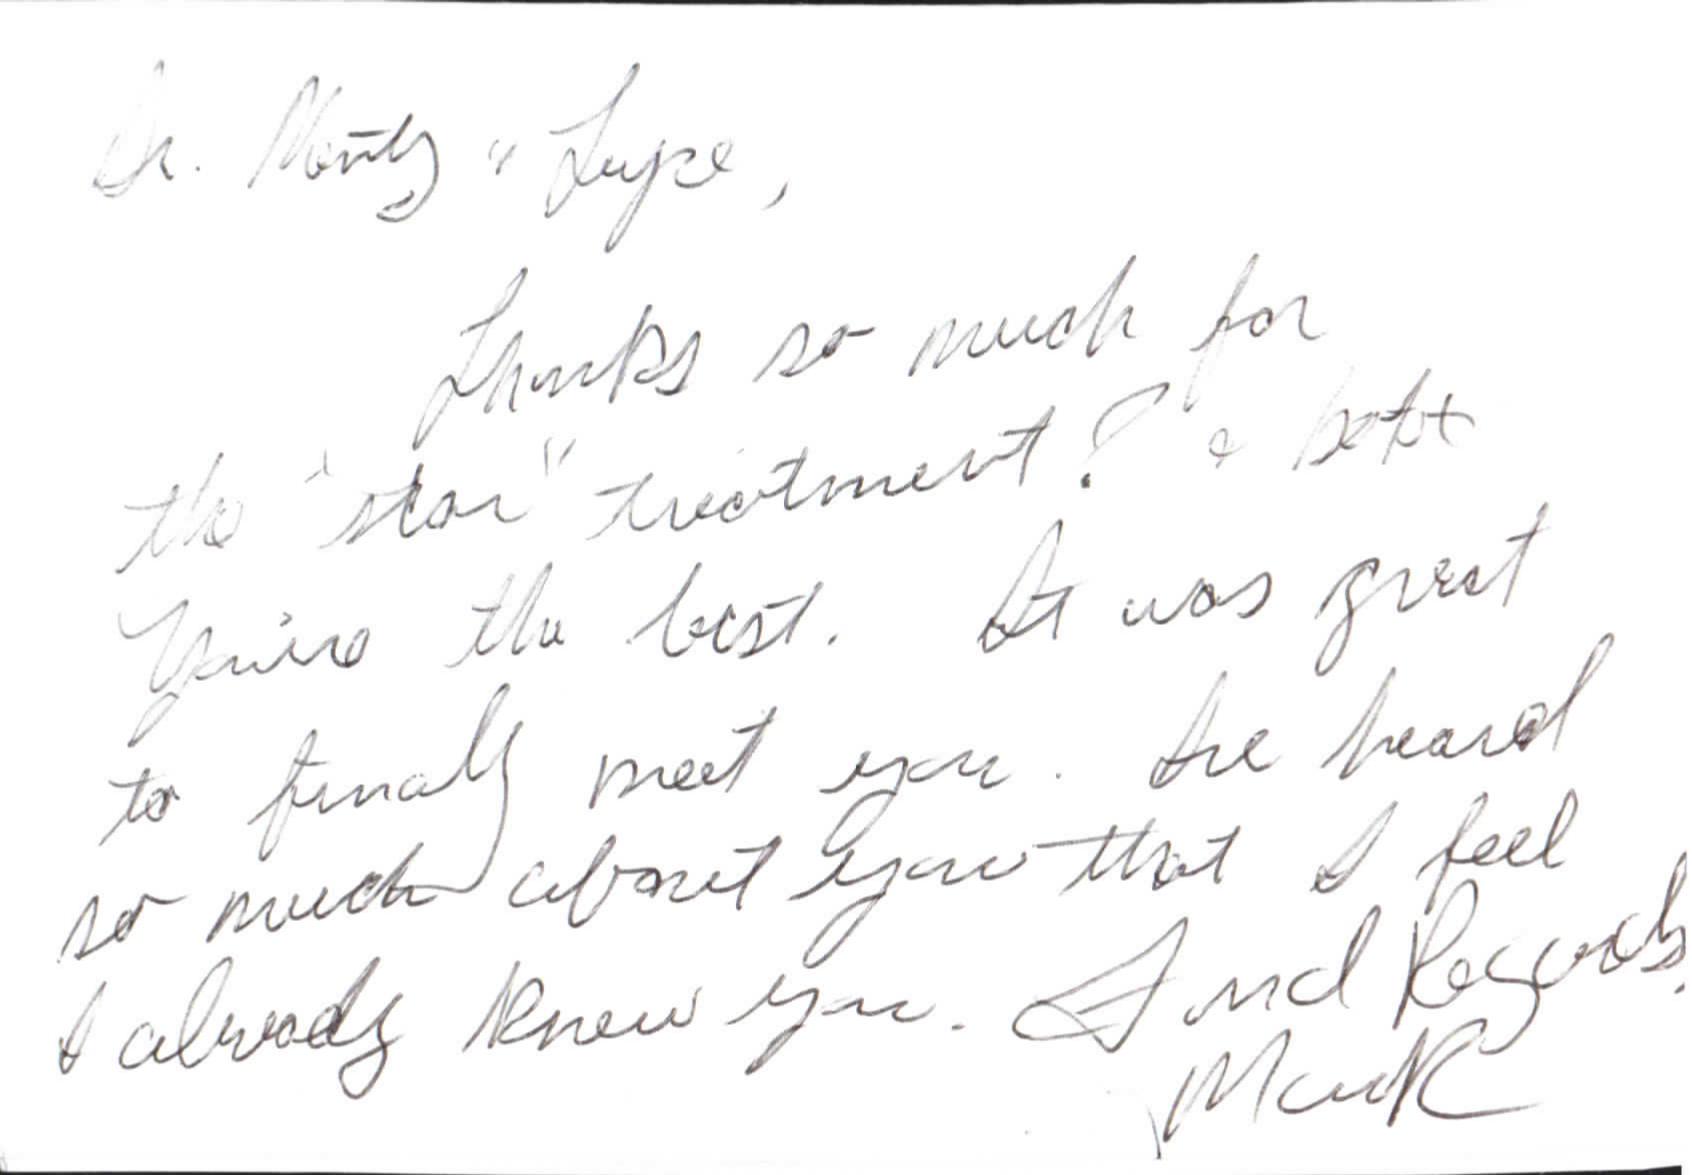 Dr. Moritz &
Thanks so much for
the "star" treatment!
You're the best. It was great
to finaly meet you. I've heard
so much about you that I feel
I already knew you. Fond Regards,
Mark